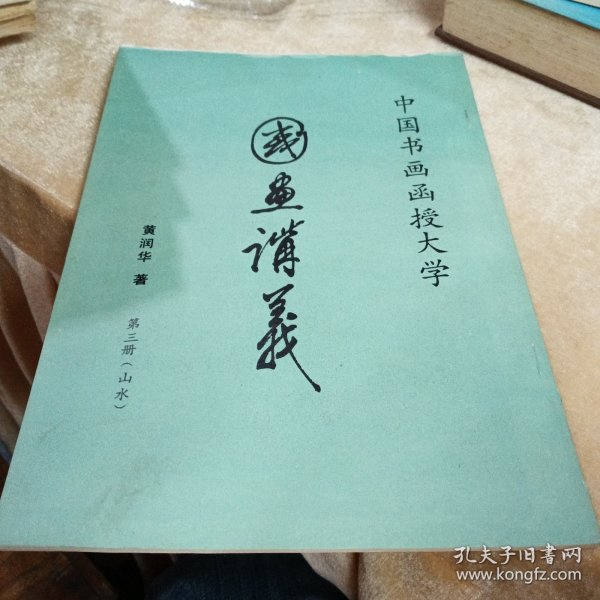 中国书画函授大学
國畫講義
黄润华 著
第三册（山水）
孔夫子旧书网
www.kongfz.com